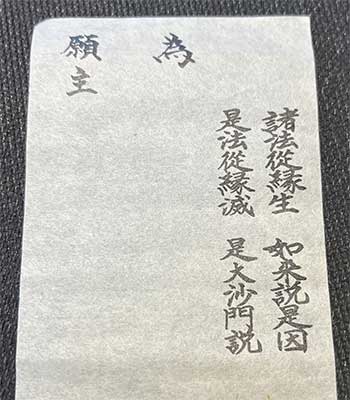 諸法從縁生 如来説是因
是法從縁滅 是大沙門説
為
願主